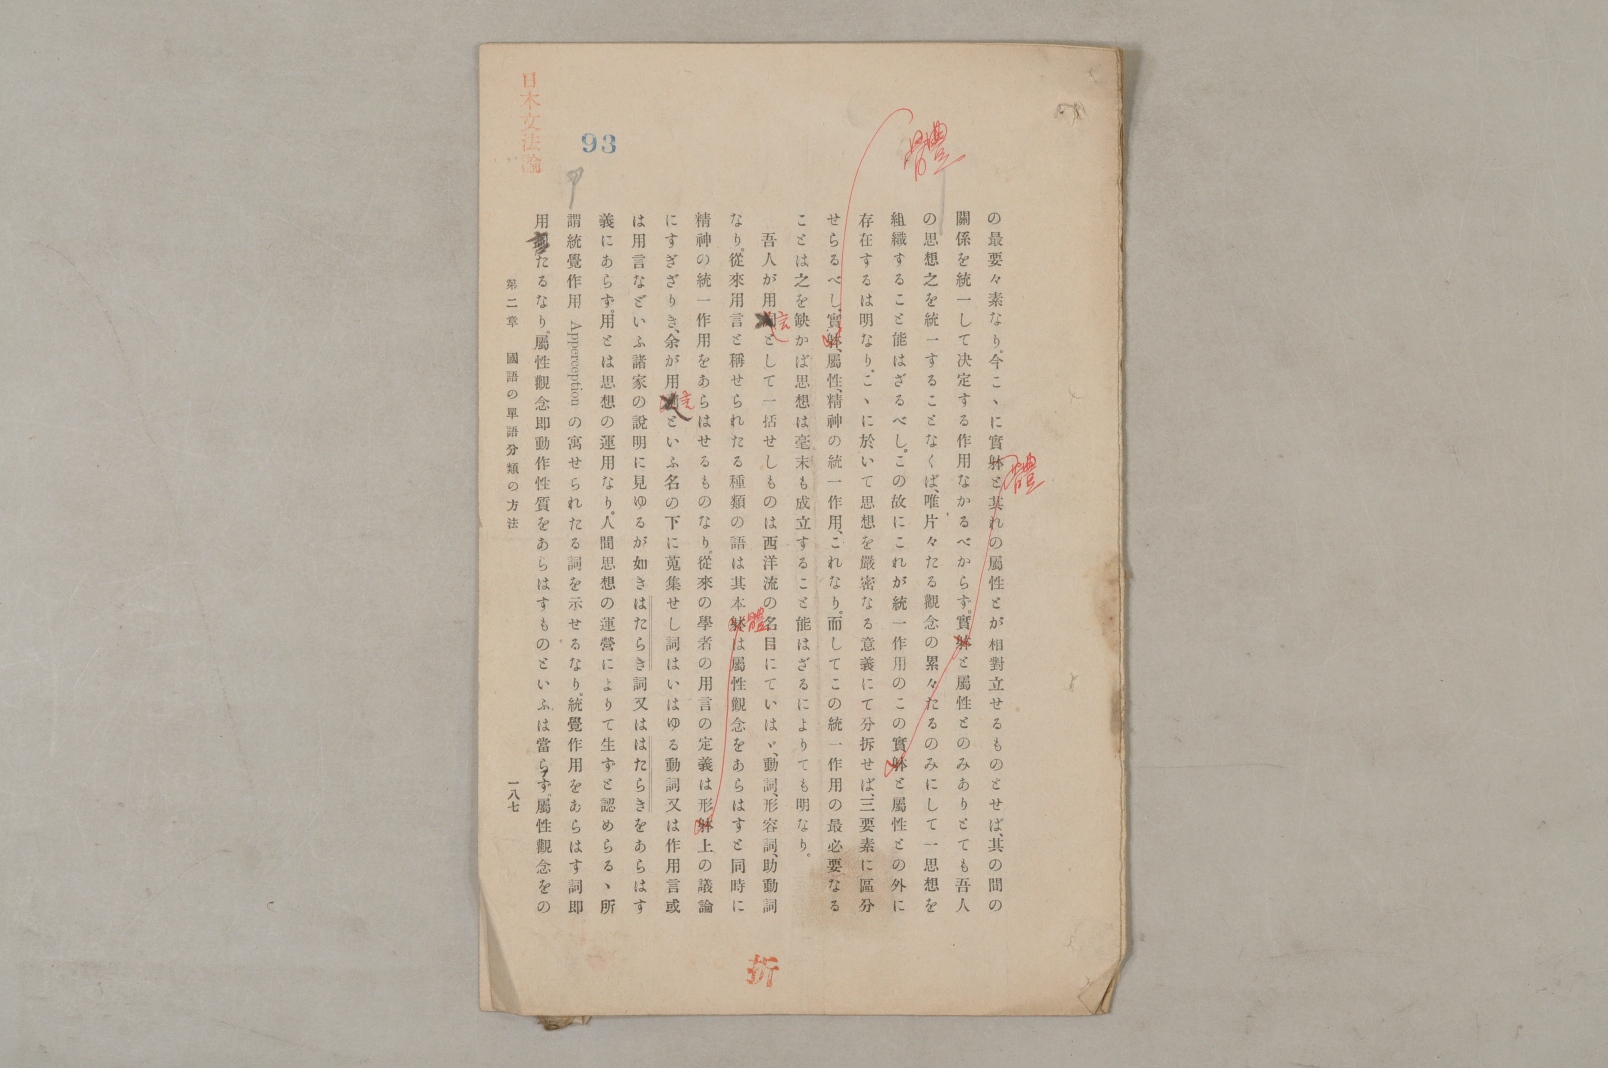 日本文法論
93
體
の最要々素なり。今こゝに實躰と其れの屬性とが相對立せるものとせば、其の間の
體
關係を統一して決定する作用なかるべからず。實躰と屬性とのみありとても吾人
の思想之を統一することなくば、唯片々たる觀念の累々たるのみにして一思想を
組織すること能はざるべし。この故にこれが統一作用のこの實躰と屬性との外に
存在するは明なり。こゝに於いて思想を嚴密なる意義にて分拆せば、三要素に區分
せらるべし。實躰、屬性、精神の統一作用、これなり。而してこの統一作用の最必要なる
ことは之を缺かば思想は毫末も成立すること能はざるによりても明なり。
吾人が用言として一括せしものは西洋流の名目にていはゞ、動詞、形容詞、助動詞
なり。從來用言と稱せられたる種類の語は其本躰は屬性觀念をあらはすと同時に
體
精神の統一作用をあらはせるものなり。從來の學者の用言の定義は形躰上の議論
にすぎざりき、余が用言といふ名の下に蒐集せし詞はいはゆる動詞又は作用言或
は用言などいふ諸家の說明に見ゆるが如きはたらき詞又ははたらきをあらはす
義にあらず。用とは思想の運用なり。人間思想の運營によりて生ずと認めらるゝ所
謂統覺作用 Apperception の寓せられたる詞を示せるなり。統覺作用をあらはす詞即
用言たるなり。屬性觀念即動作性質をあらはすものといふは當らず。屬性觀念をの
第二章 國語の單語分類の方法
一八七
折